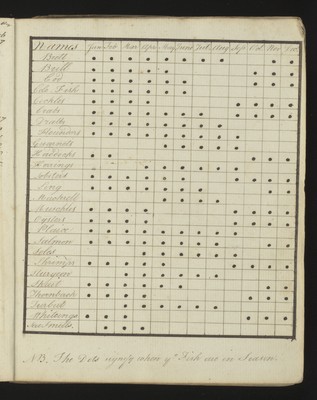 Names Jan Feb Mar Apr May June July Aug Sep Oct Nov Dec
Brill
Cod
Cockles
Crabs
Flounders
Gurnards
Haddocks
Herrings
Lobsters
Ling
Mackrell
Muschles
Oysters
Plaice
Salmon
Soles
Shrimps
Sturgeon
Skeat
Thornback
Turbut
Whitings
NB. The Dots signify when ye Fish are in Season.